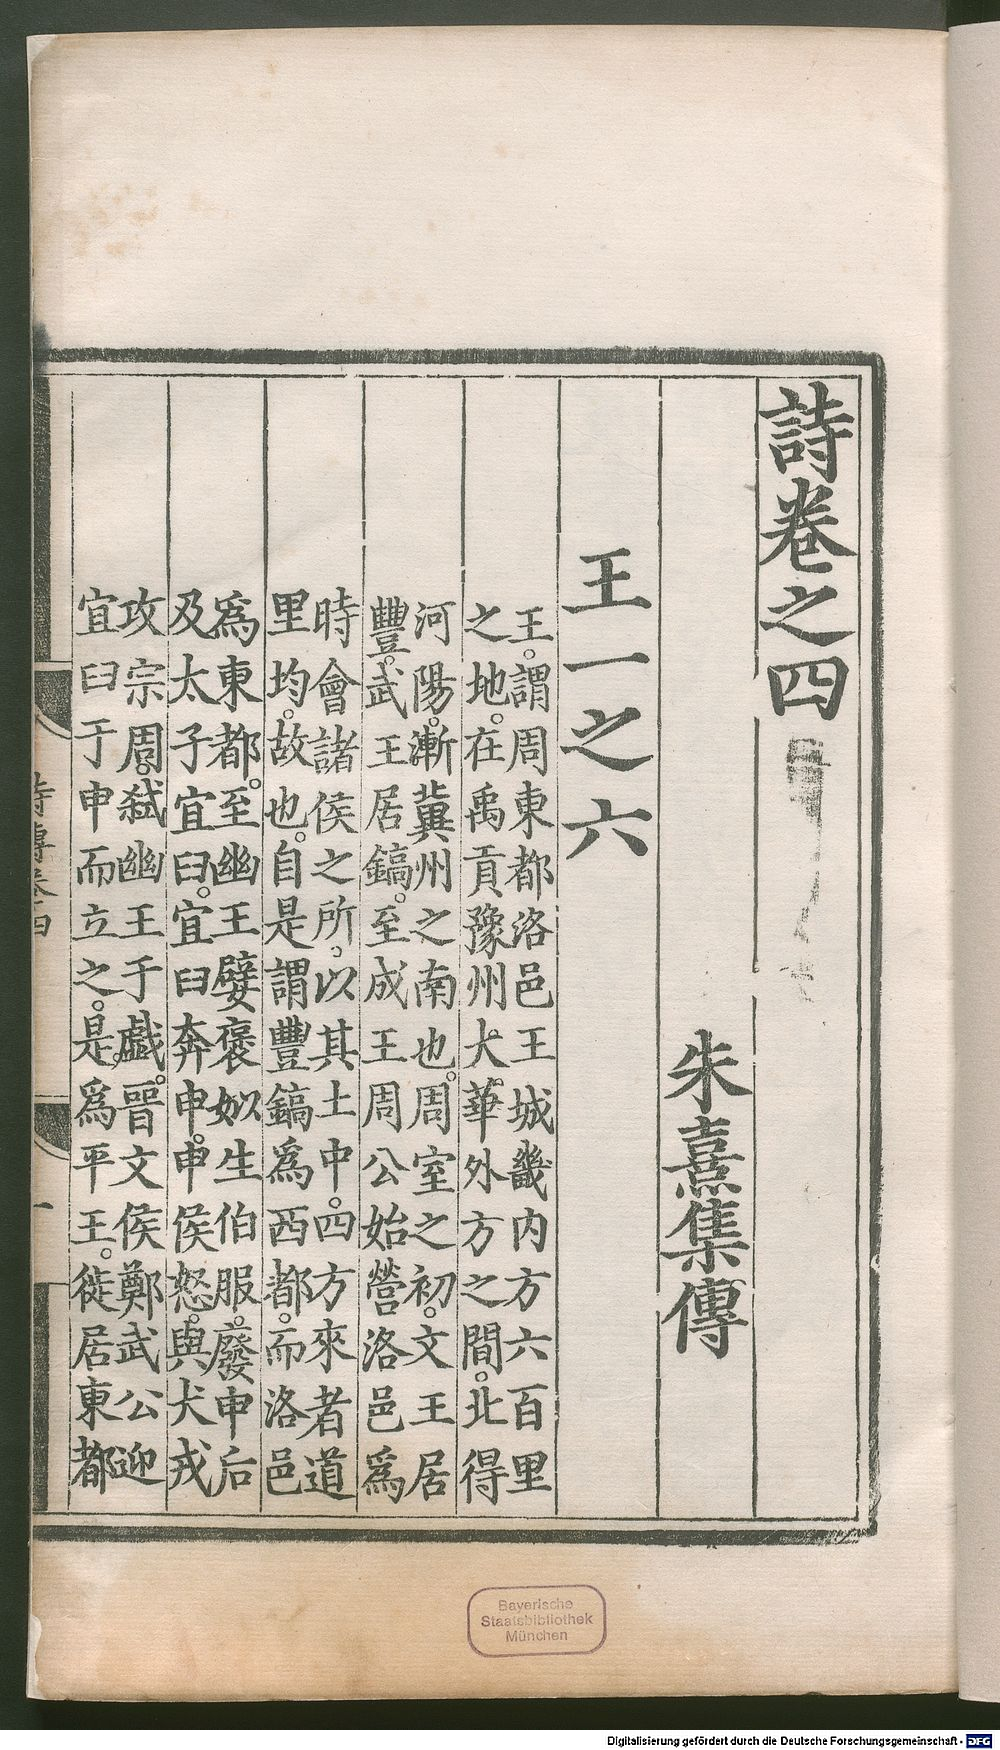 詩卷之四
朱熹集傳
王一之六
王。謂周東都洛邑王城畿内方六百里
之地。在禹貢豫州。大華外方之間。北得
河陽。漸冀州之南也。周室之初。文王居
豐。武王居鎬。至成王周公始營洛邑爲
時會諸侯之所。以其土中。四方來者道
里均。故也。自是謂豐鎬爲西都。而洛邑
爲東都。至幽王嬖褒姒生伯服。廢申后
及太子宜臼。宜臼奔申。申侯怒。與犬戎
攻宗周。弑幽王于戲。晉文侯鄭武公迎
宜臼于申而立之。是爲平王。徙居東都
詩傳卷四
一
Bayerische
Staatsbibliothek
München
Digitalisierung gefördert durch die Deutsche Forschungsgemeinschaft - DFG